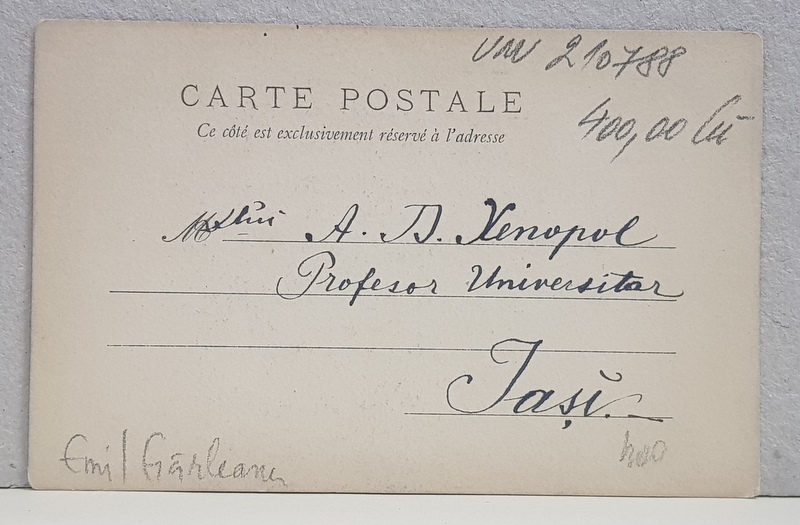 210788
400,00 lei
CARTE POSTALE
Ce côté est exclusivement réservé à l'adresse
A. D. Xenopol
Profesor Universitar
Iași.
Emil Gârleanu
400